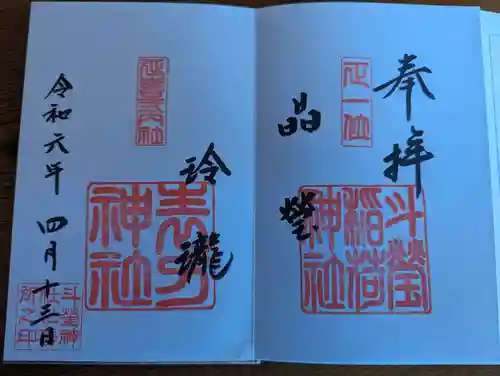 奉拝
正一位
斗瑩
稲荷
神社
晶瑩
玲瓏
延喜式内社
表刀
神社
令和元年 四月十三日
斗瑩神
所之印